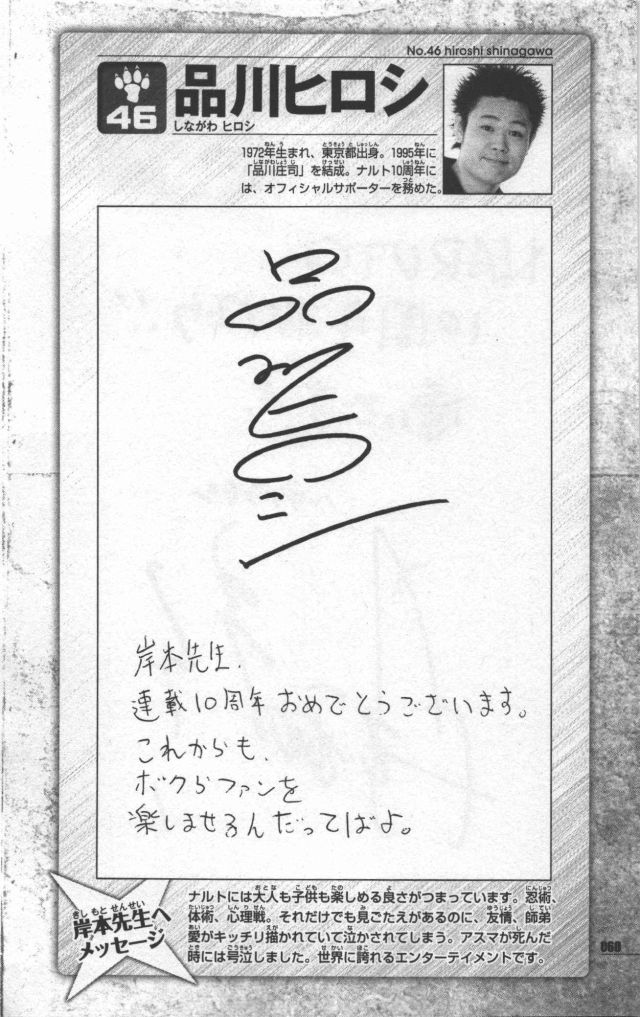 No.46 hiroshi shinagawa
46
品川ヒロシ
しながわ ヒロシ
1972年生まれ、東京都出身。1995年に
「品川庄司」を結成。ナルト10周年に
は、オフィシャルサポーターを務めた。
岸本先生、
連載10周年おめでとうございます。
これからも、
ボクらファンを
楽しませるんだってばよ。
岸本先生へ
メッセージ
ナルトには大人も子供も楽しめる良さがつまっています。忍術、
体術、心理戦。それだけでも見ごたえがあるのに、友情、師弟
愛がキッチリ描かれていて泣かされてしまう。アスマが死んだ
時には号泣しました。世界に誇れるエンターテイメントです。
060